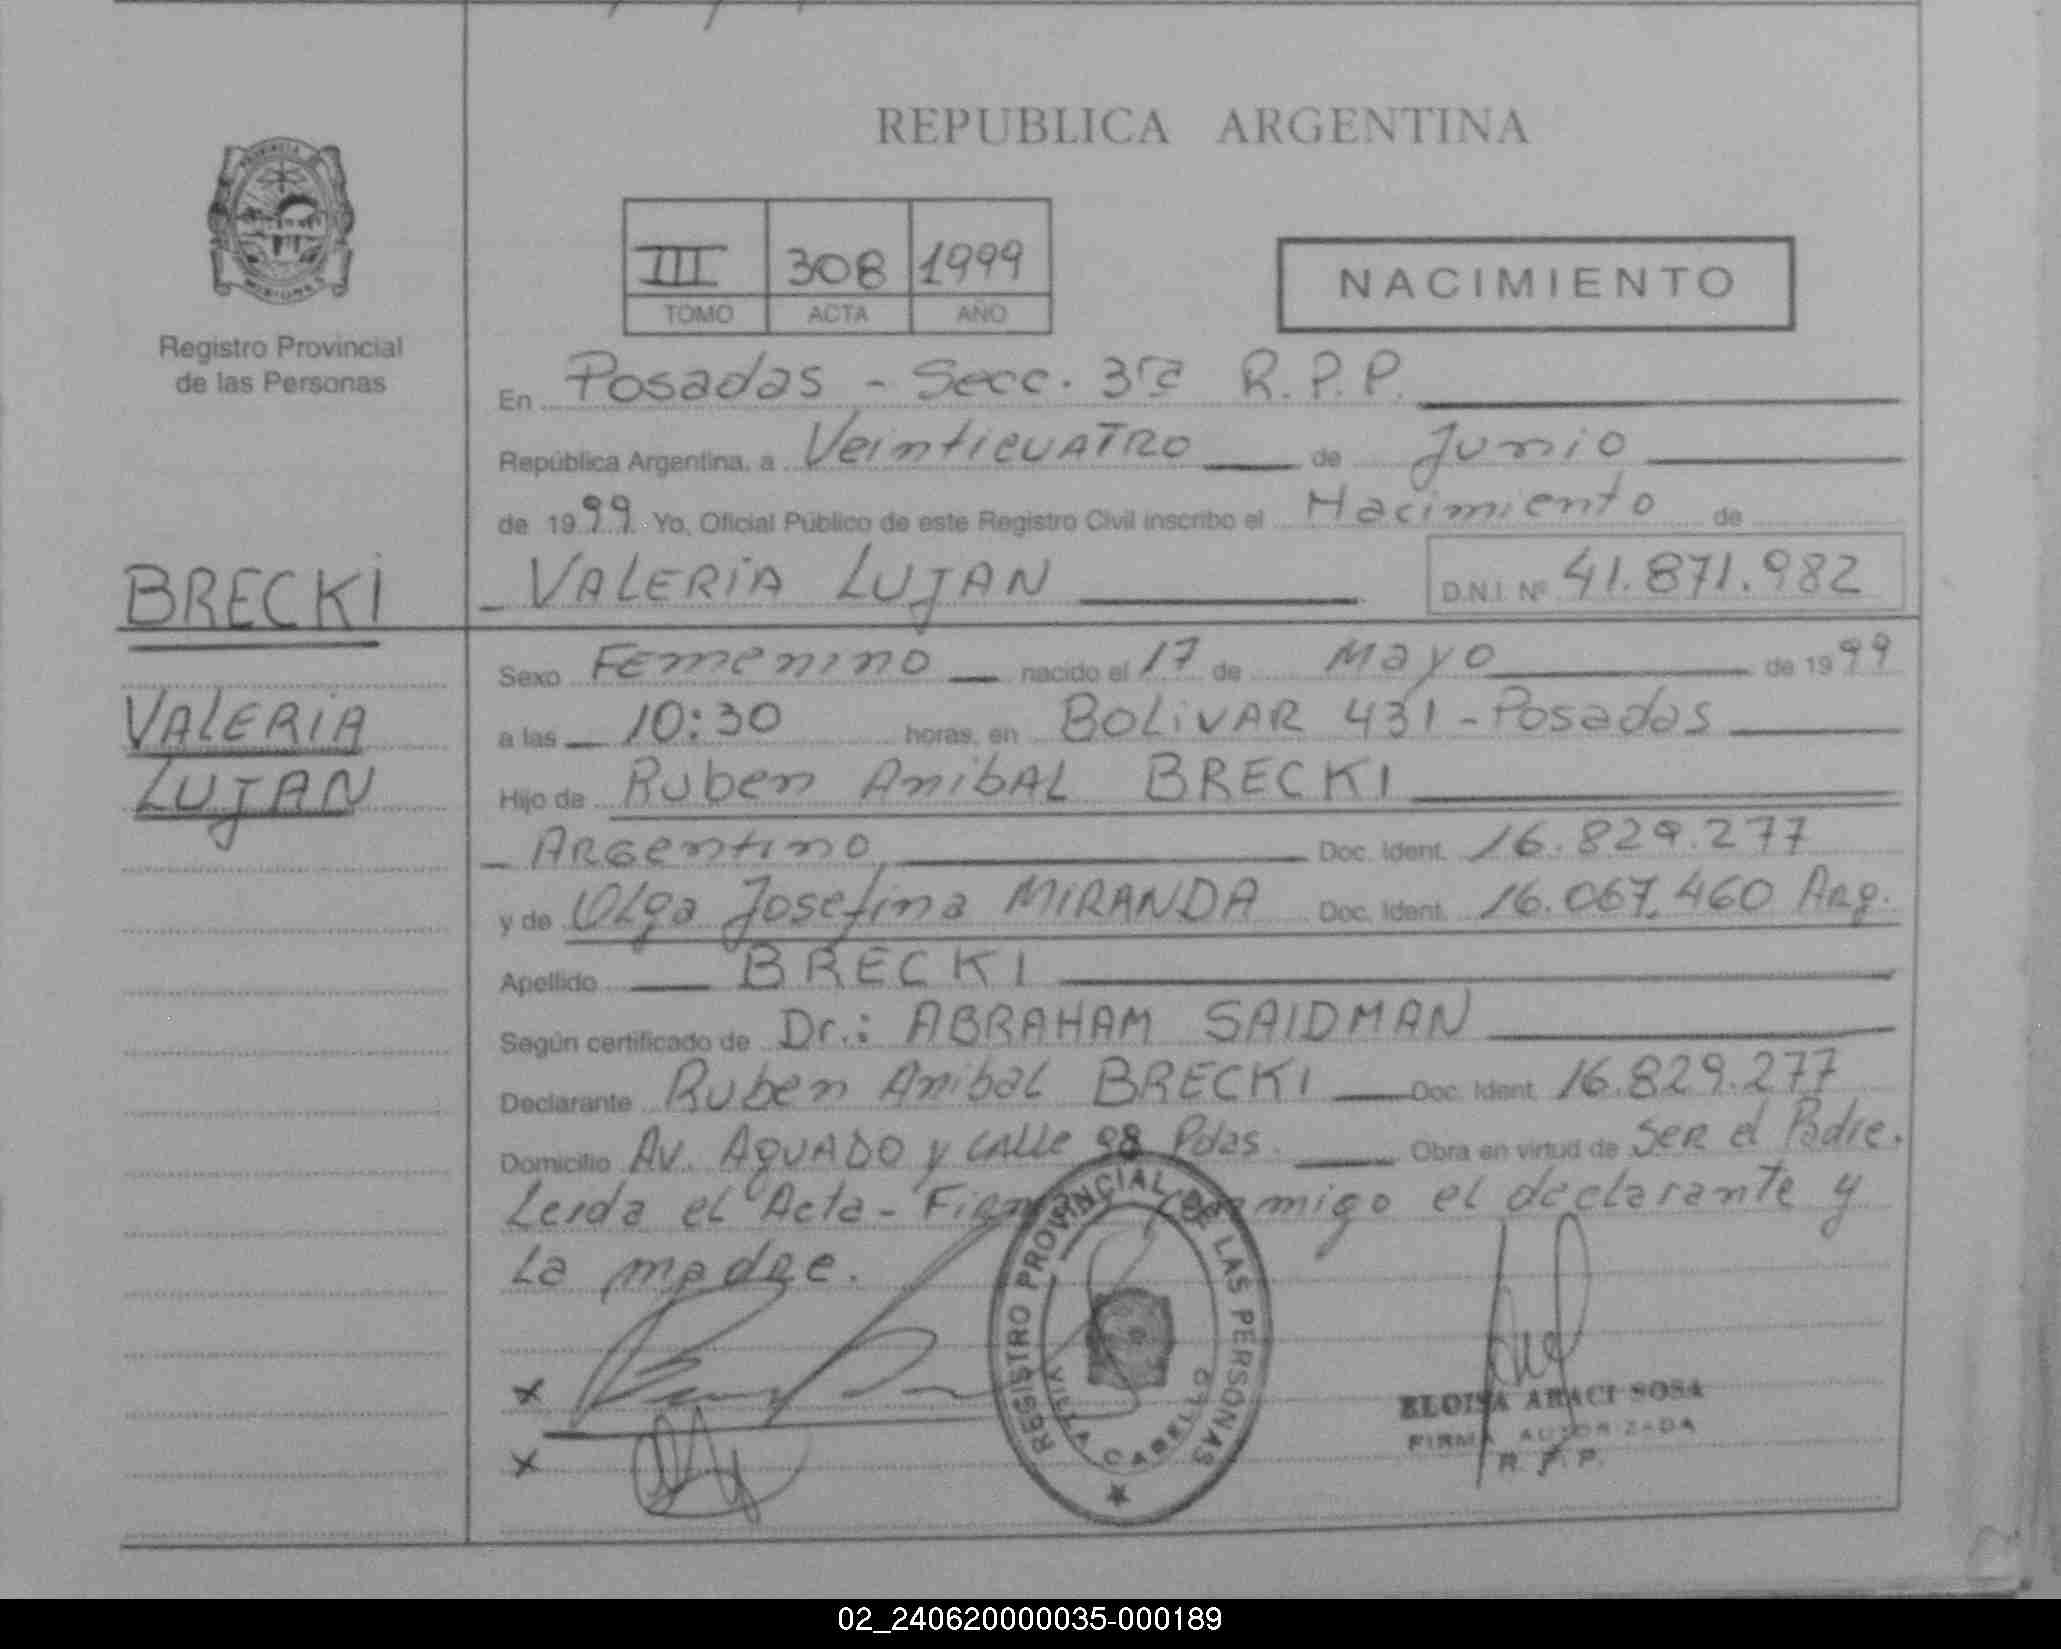 REPUBLICA ARGENTINA
PROVINCIA
MISIONES
Registro Provincial
de las Personas
III 308 1999
TOMO ACTA AÑO
NACIMIENTO
En Posadas - Secc. 3ra R.P.P.
República Argentina, a Veinticuatro de Junio
de 1999 Yo, Oficial Público de este Registro Civil inscribo el Nacimiento de
VALERIA LUJAN D.N.I. Nº 41.871.982
BRECKI
VALERIA
LUJAN
Sexo Femenino nacido el 17 de Mayo de 1999
a las 10:30 horas, en BOLIVAR 431 - Posadas
Hijo de Ruben Anibal BRECKI
Argentino Doc. Ident. 16.829.277
y de Olga Josefina MIRANDA Doc. Ident. 16.067.460 Arg.
Apellido BRECKI
Según certificado de Dr.: ABRAHAM SAIDMAN
Declarante Ruben Anibal BRECKI Doc. Ident. 16.829.277
Domicilio Av. AGUADO y calle 98 Pdas. Obra en virtud de Ser el Padre.
Leida el Acta - Firma conmigo el declarante y
La madre.
REGISTRO PROVINCIAL DE LAS PERSONAS
VILLA CABELLO
x
x
ELOISA ARACI SOSA
FIRMA AUTORIZADA
R. P. P.
02_240620000035-000189